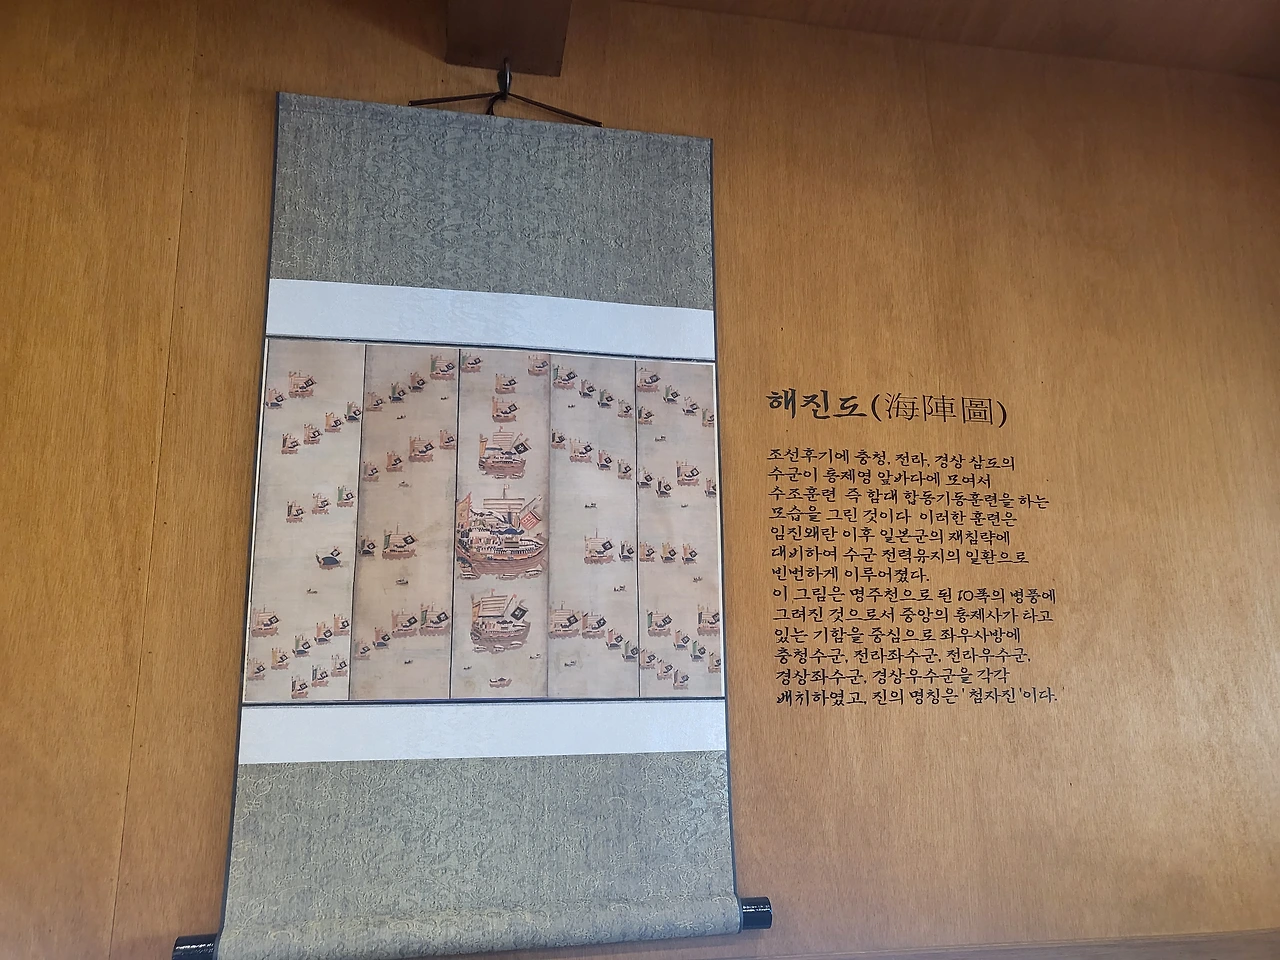 해진도(海陣圖)
조선후기에 충청, 전라, 경상 삼도의
수군이 통제영 앞바다에 모여서
수조훈련 즉 함대 합동기동훈련을 하는
모습을 그린 것이다 이러한 훈련은
임진왜란 이후 일본군의 재침략에
대비하여 수군 전력유지의 일환으로
빈번하게 이루어졌다.
이 그림은 명주천으로 된 10폭의 병풍에
그려진 것으로서 중앙의 통제사가 타고
있는 기함을 중심으로 좌우사방에
충청수군, 전라좌수군, 전라우수군,
경상좌수군, 경상우수군을 각각
배치하였고, 진의 명칭은 '첨자진'이다.